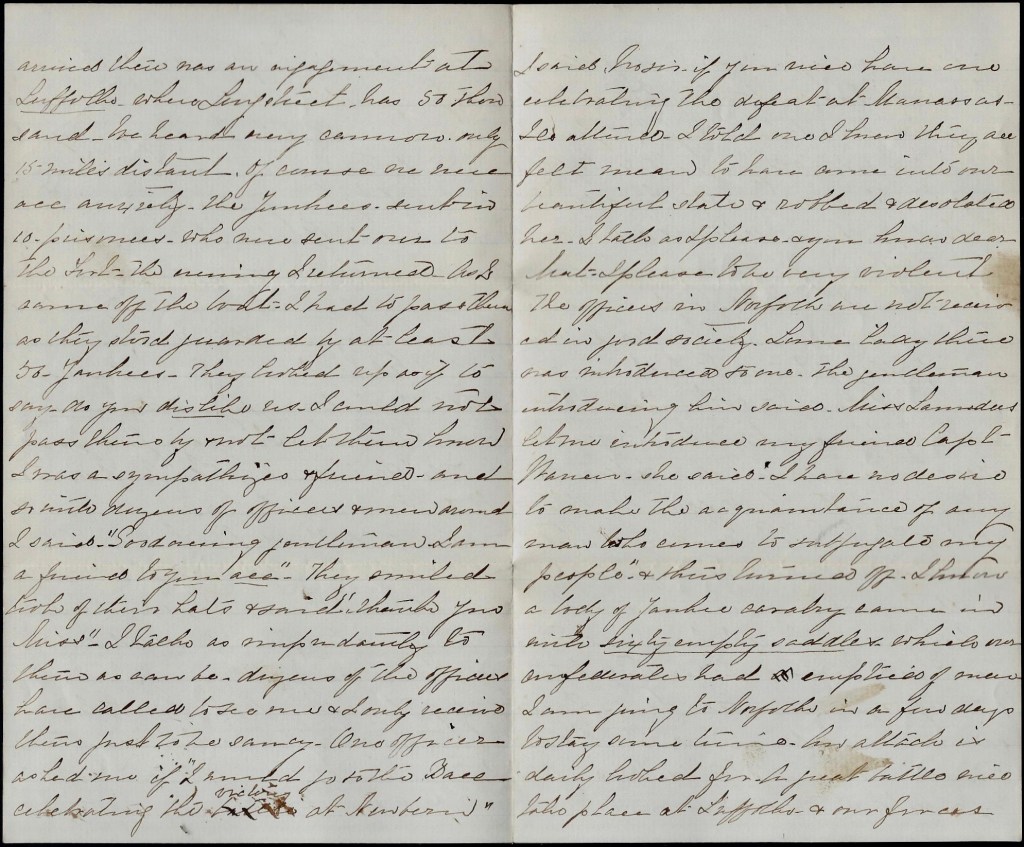 arrived there was an engagement at
Suffolk where Longstreet has 50 thou
sand - We heard every cannon only
15 miles distant. Of course we were
all anxiety - the Yankees sent in
10 prisoners - who were sent over to
the Fort - the evening I returned. As I
came off the boat - I had to pass them
as they stood guarded by at least
50 Yankees - They looked up as if to
say do you dislike us - I could not
pass them by & not let them know
I was a sympathizer & friend - and
so with dozens of officers & men around
I said - "Good evening gentleman I am
a friend to you all" - They smiled
took of their hats & said "thank you
Miss" - I talk as impudently to
them as can be - dozens of the officers
have called to see me & I only receive
them just to be saucy - One officer
asked me if "I would go to the Ball
celebrating the victory at Newbern"
I said, No sir - if you will have one
celebrating the defeat at Manassas -
I'll attend - I told one I knew they all
felt mean to have come into our
beautiful state & robbed & desolated
her - I talk as I please - & you know dear
that I please to be very violent
The officers in Norfolk are not receiv
ed in good society - Some lady there
was introduced to one - the gentleman
introducing him said - Miss Saunders
let me introduce my friend Capt
Warren - she said "I have no desire
to make the acquaintance of any
man who comes to subjugate my
people" & thus turned off - I know
a body of Yankee cavalry came in
with sixty empty saddles which our
confederates had emptied of men
I am going to Norfolk in a few days
to stay some time - An attack is
daily looked for - A great battle will
take place at Suffolk - & our forces